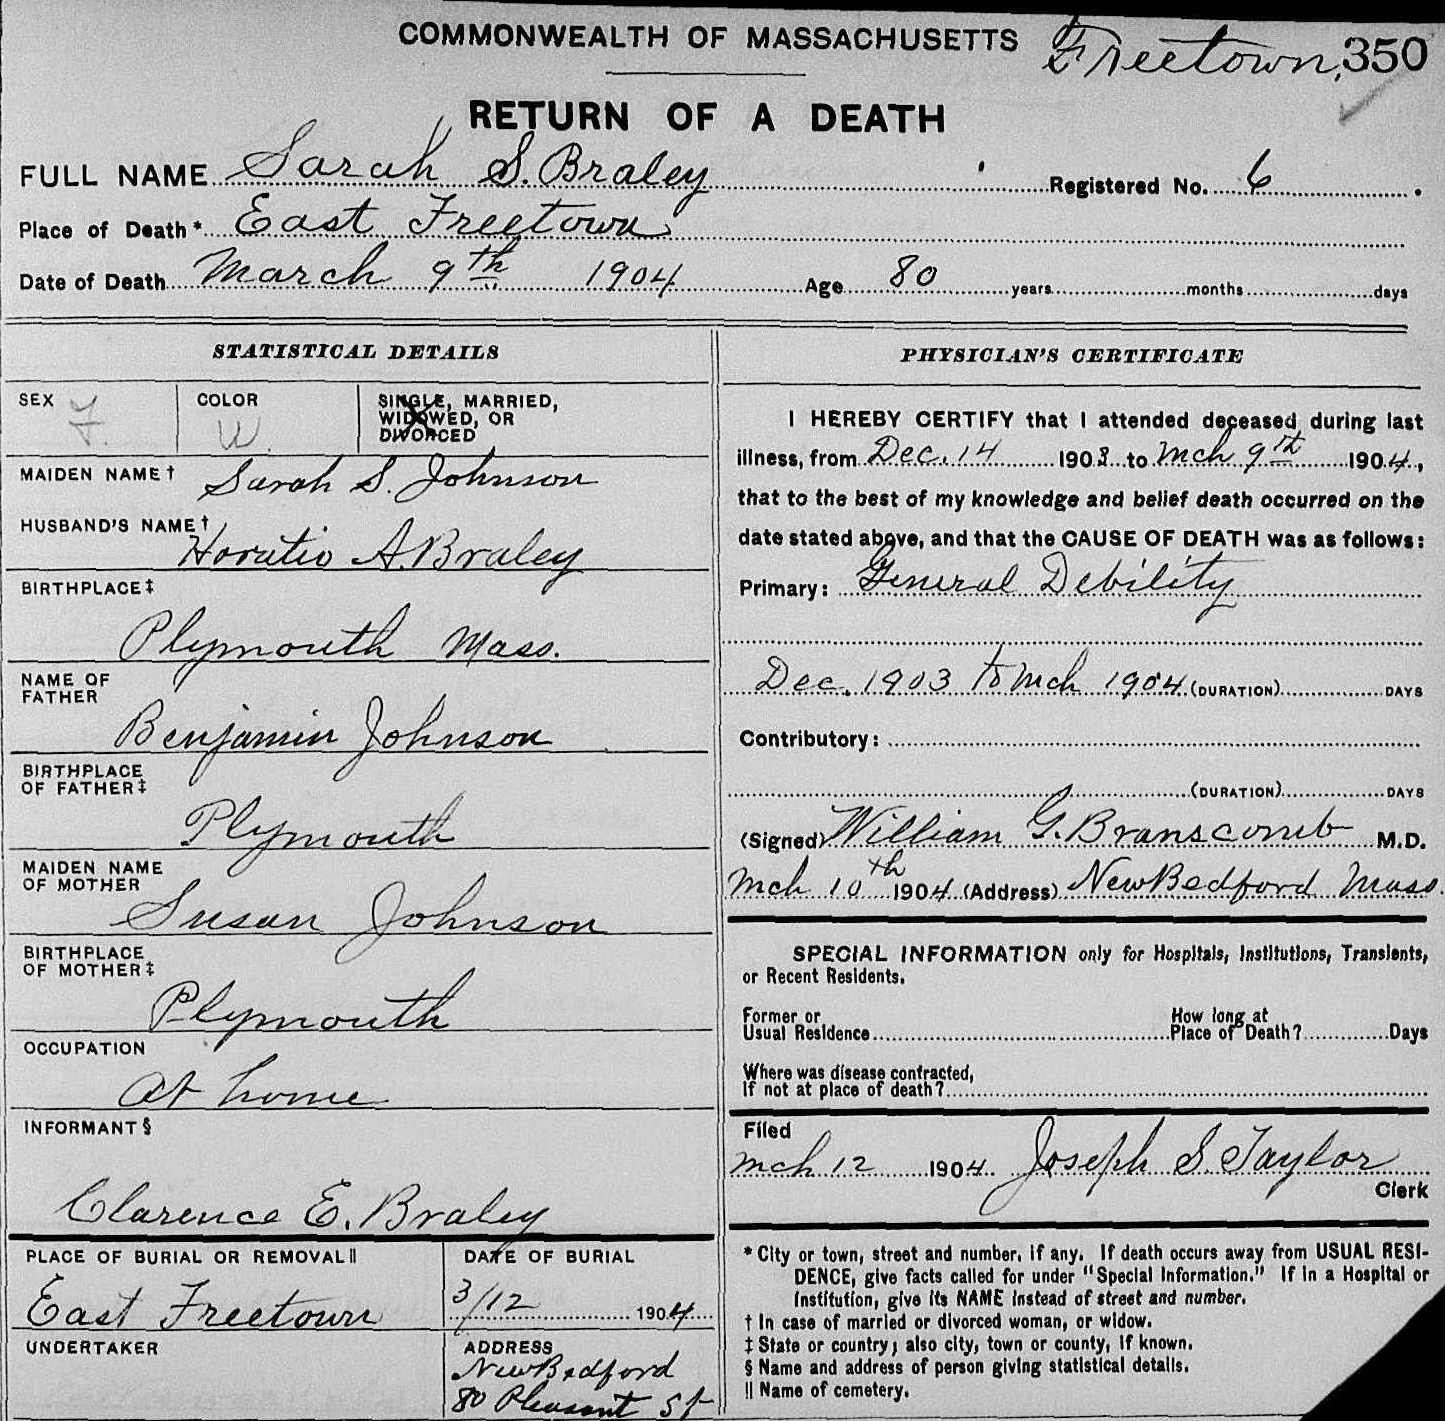 COMMONWEALTH OF MASSACHUSETTS Freetown, 350
RETURN OF A DEATH
FULL NAME Sarah S. Braley Registered No. 6
Place of Death* East Freetown
Date of Death March 9th 1904 Age 80 years months days
STATISTICAL DETAILS
SEX F. COLOR W. SINGLE, MARRIED,
WIDOWED, OR
DIVORCED
MAIDEN NAME† Sarah S. Johnson
HUSBAND'S NAME† Horatio A. Braley
BIRTHPLACE‡
Plymouth Mass.
NAME OF
FATHER
Benjamin Johnson
BIRTHPLACE
OF FATHER‡
Plymouth
MAIDEN NAME
OF MOTHER
Susan Johnson
BIRTHPLACE
OF MOTHER‡
Plymouth
OCCUPATION
At home
INFORMANT§
Clarence E. Braley
PLACE OF BURIAL OR REMOVAL||
East Freetown
DATE OF BURIAL
3/12 1904
UNDERTAKER
ADDRESS
New Bedford
80 Pleasant St
PHYSICIAN'S CERTIFICATE
I HEREBY CERTIFY that I attended deceased during last
illness, from Dec. 14 1903 to Mch 9th 1904,
that to the best of my knowledge and belief death occurred on the
date stated above, and that the CAUSE OF DEATH was as follows:
Primary: General Debility
Dec. 1903 to Mch 1904 (DURATION) DAYS
Contributory:
(DURATION) DAYS
(Signed) William G. Branscomb M.D.
Mch 10th 1904 (Address) New Bedford Mass.
SPECIAL INFORMATION only for Hospitals, Institutions, Transients,
or Recent Residents.
Former or
Usual Residence
How long at
Place of Death? Days
Where was disease contracted,
If not at place of death?
Filed
Mch 12 1904 Joseph S. Taylor
Clerk
* City or town, street and number, if any. If death occurs away from USUAL RESI-
DENCE, give facts called for under "Special Information." If in a Hospital or
Institution, give its NAME instead of street and number.
† In case of married or divorced woman, or widow.
‡ State or country; also city, town or county, if known.
§ Name and address of person giving statistical details.
|| Name of cemetery.